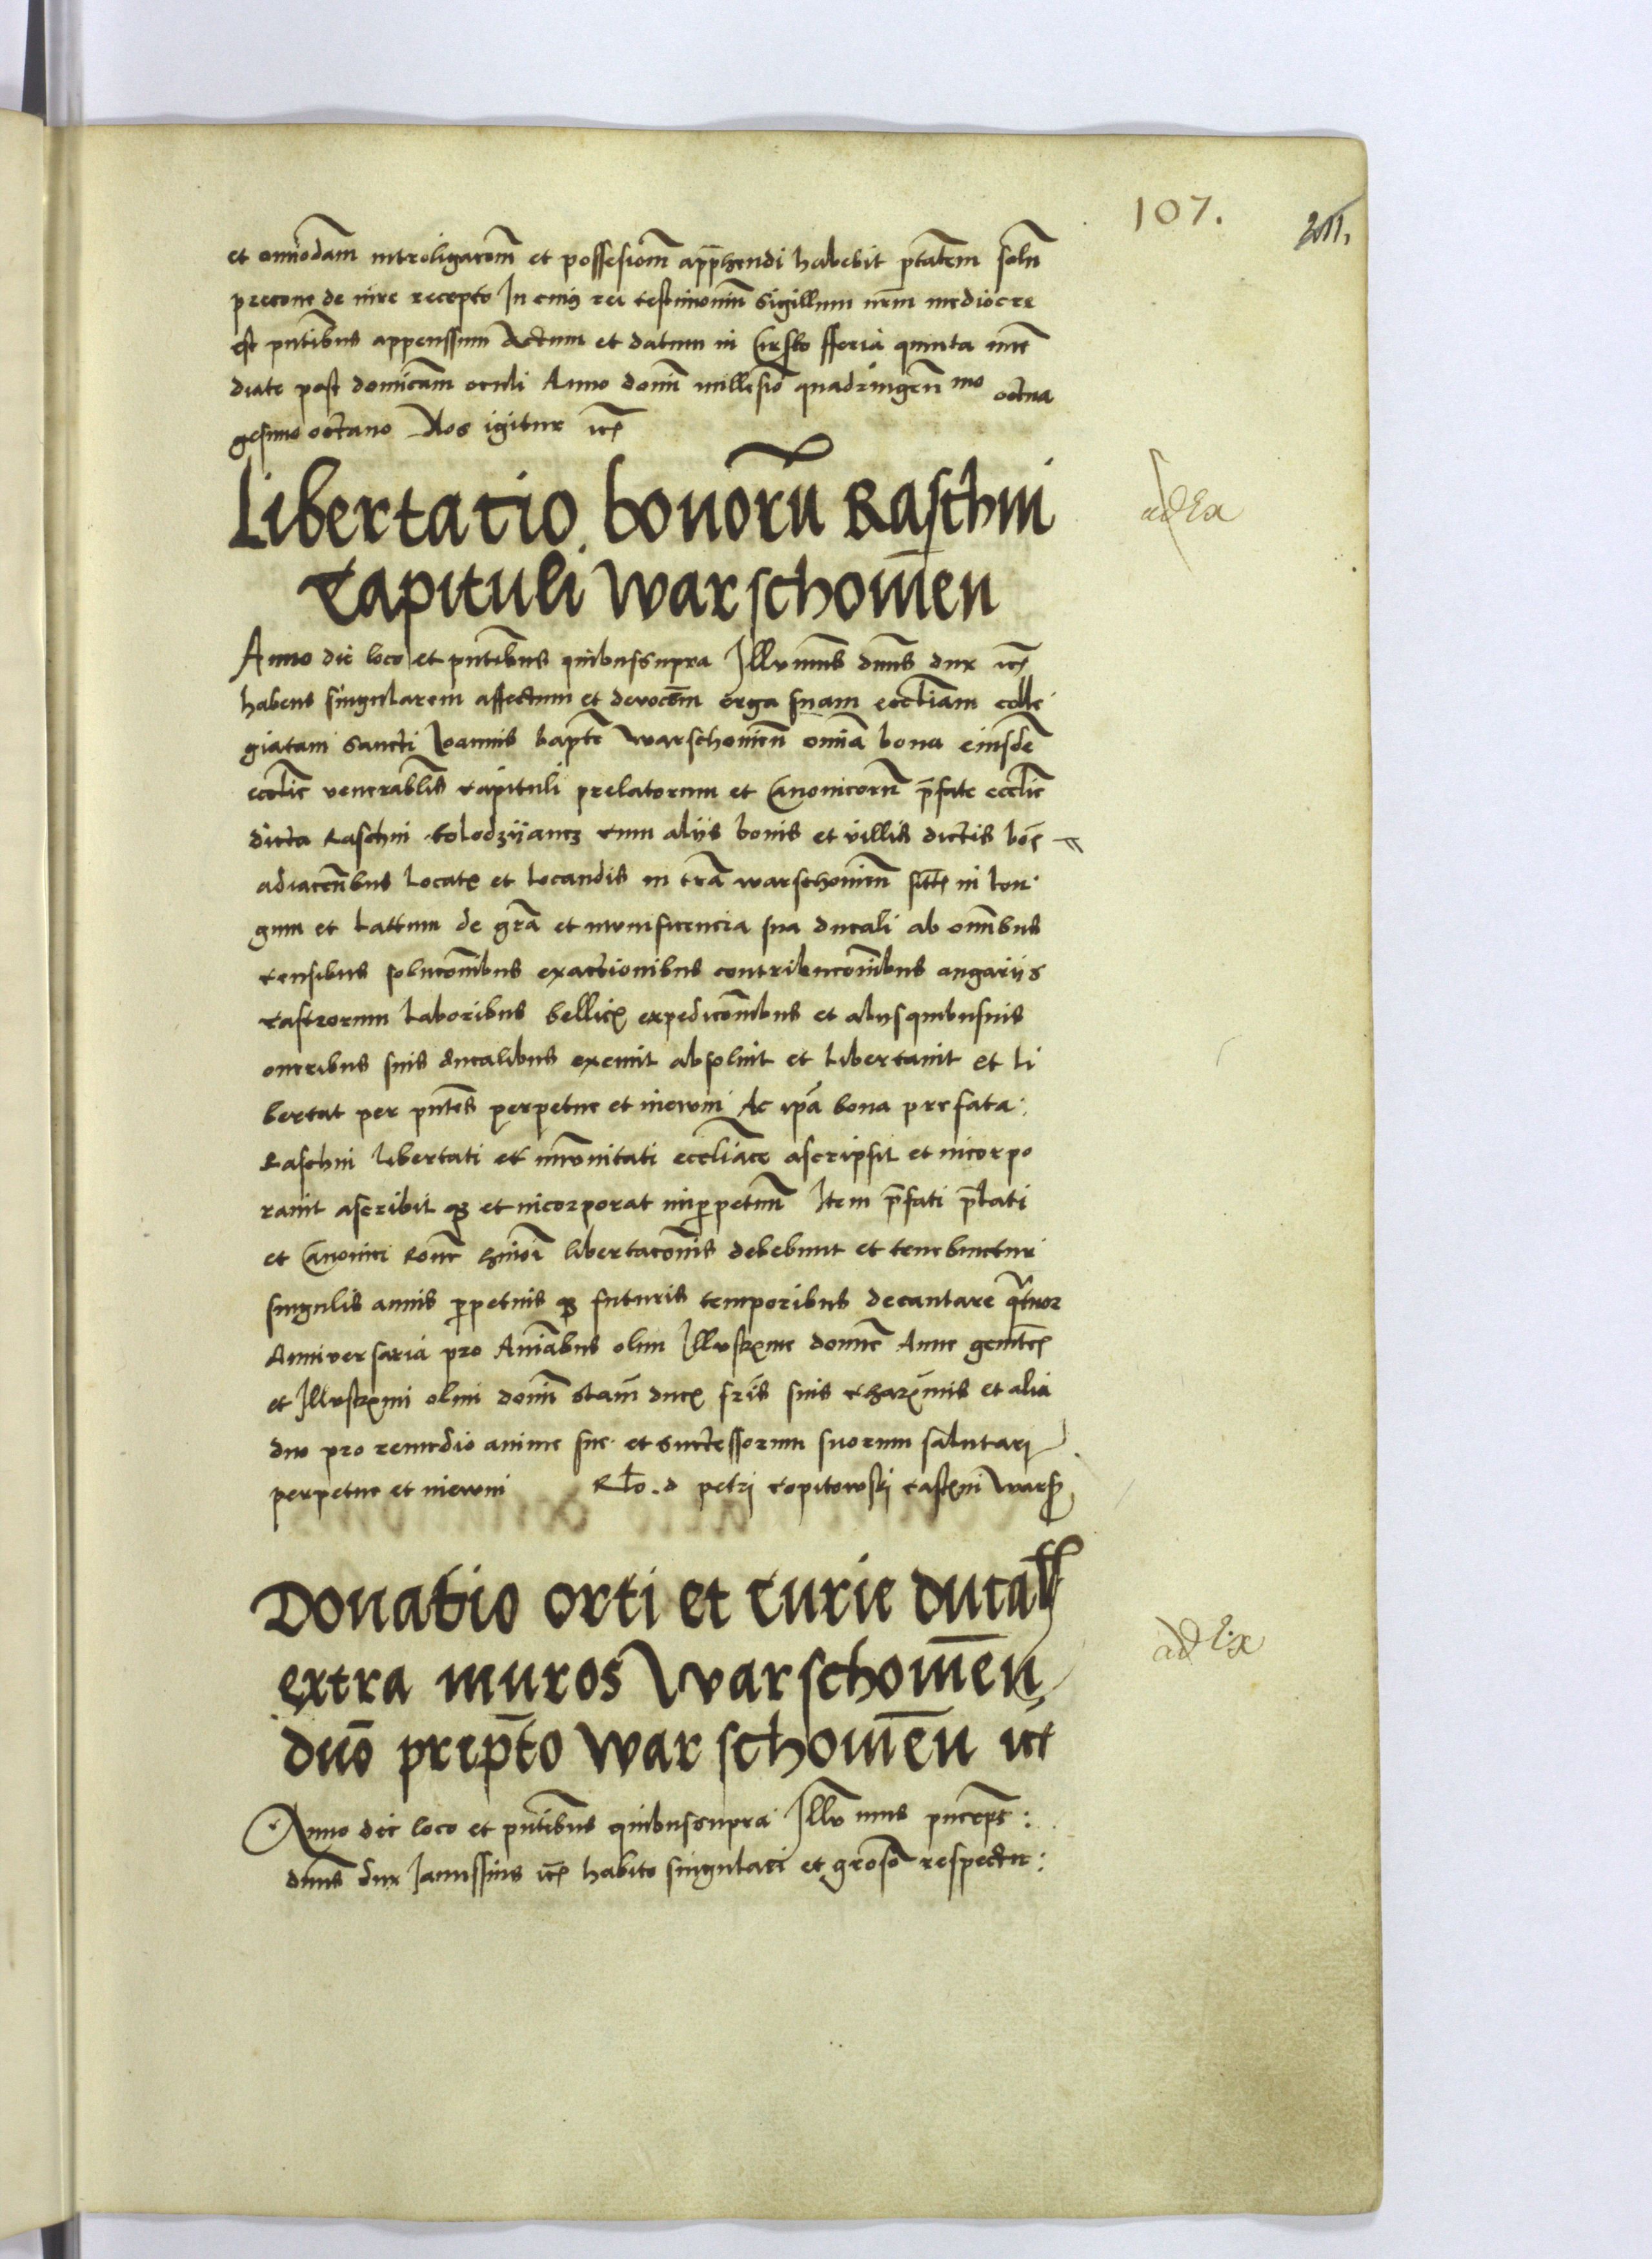 107.
211.
et omīodam introligacoēm et possesionēm appħendi habebit ptātem solū
precone de iure recepto In cuius rei testimoniū sigillum nrm̄ mediocre
est pntibus appenssum Actum et datum in Cirsko fferia quinta imē
diate post domīcam oculi Anno domī millesiō quadringen mo octua
gesimo octauo Nos igitur etc
Libertatio bonorū Raschin
Capituli Warschouien̄
ad Ex
Anno die loco et pntibus quibussupra Illv mus dnus dux etc
habens singularem affectum et devocoēm erga suam eccliam colle
giatam sancti Joannis bapte Warschouien̄ omīa bona eiusdē
ecclie venerablis capituli prelatorum et Canonicorū p̄fate ecclie
dicta Raschin Kolodzijancz cum aliis bonis et villis dictis boē
adiacenībus locatis et locandis in trā warschouien̄ sitis in lon
gum et lattum de grā et munificencia sua ducali ab omībus
censibus solucoībus exactionibus contribucoībus angariis
castrorum laboribus bellicis expedicoībus et aliisquibusuis
oneribus suis ducalibus exemit absoluit et libertauit et li
bertat per pntes perpetue et in ewm Ac ipā bona prefata
Raschin libertati et imūnitati eccliāce ascripsit et incorpo
rauit ascribit q3 et incorporat inp̱petuū Item p̄fati p̄lati
et Canonici roē hmōi libertacōnis debebunt et tenebuntur
singulis annis p̱petuis q3 futuris temporibus decantare q̄tuor
Anniversaria pro Aniābus olim Illustrime domē Anne genitric
et Illustrimi olim domī Stani ducis fris suis charīmis et alia
duo pro remedio anime sue et successorum suorum salutari
perpetue et in ewm Rlo. d petri Copitowski castni Wars
Donatio orti et Curie ducal
extra muros Warschouien̄
duo prepto Warschouien̄ etc
ad Ex
Anno die loco et pntibus quibussupra Illv mus princeps
dnus dux Janussius etc habito singulari et groso respectu